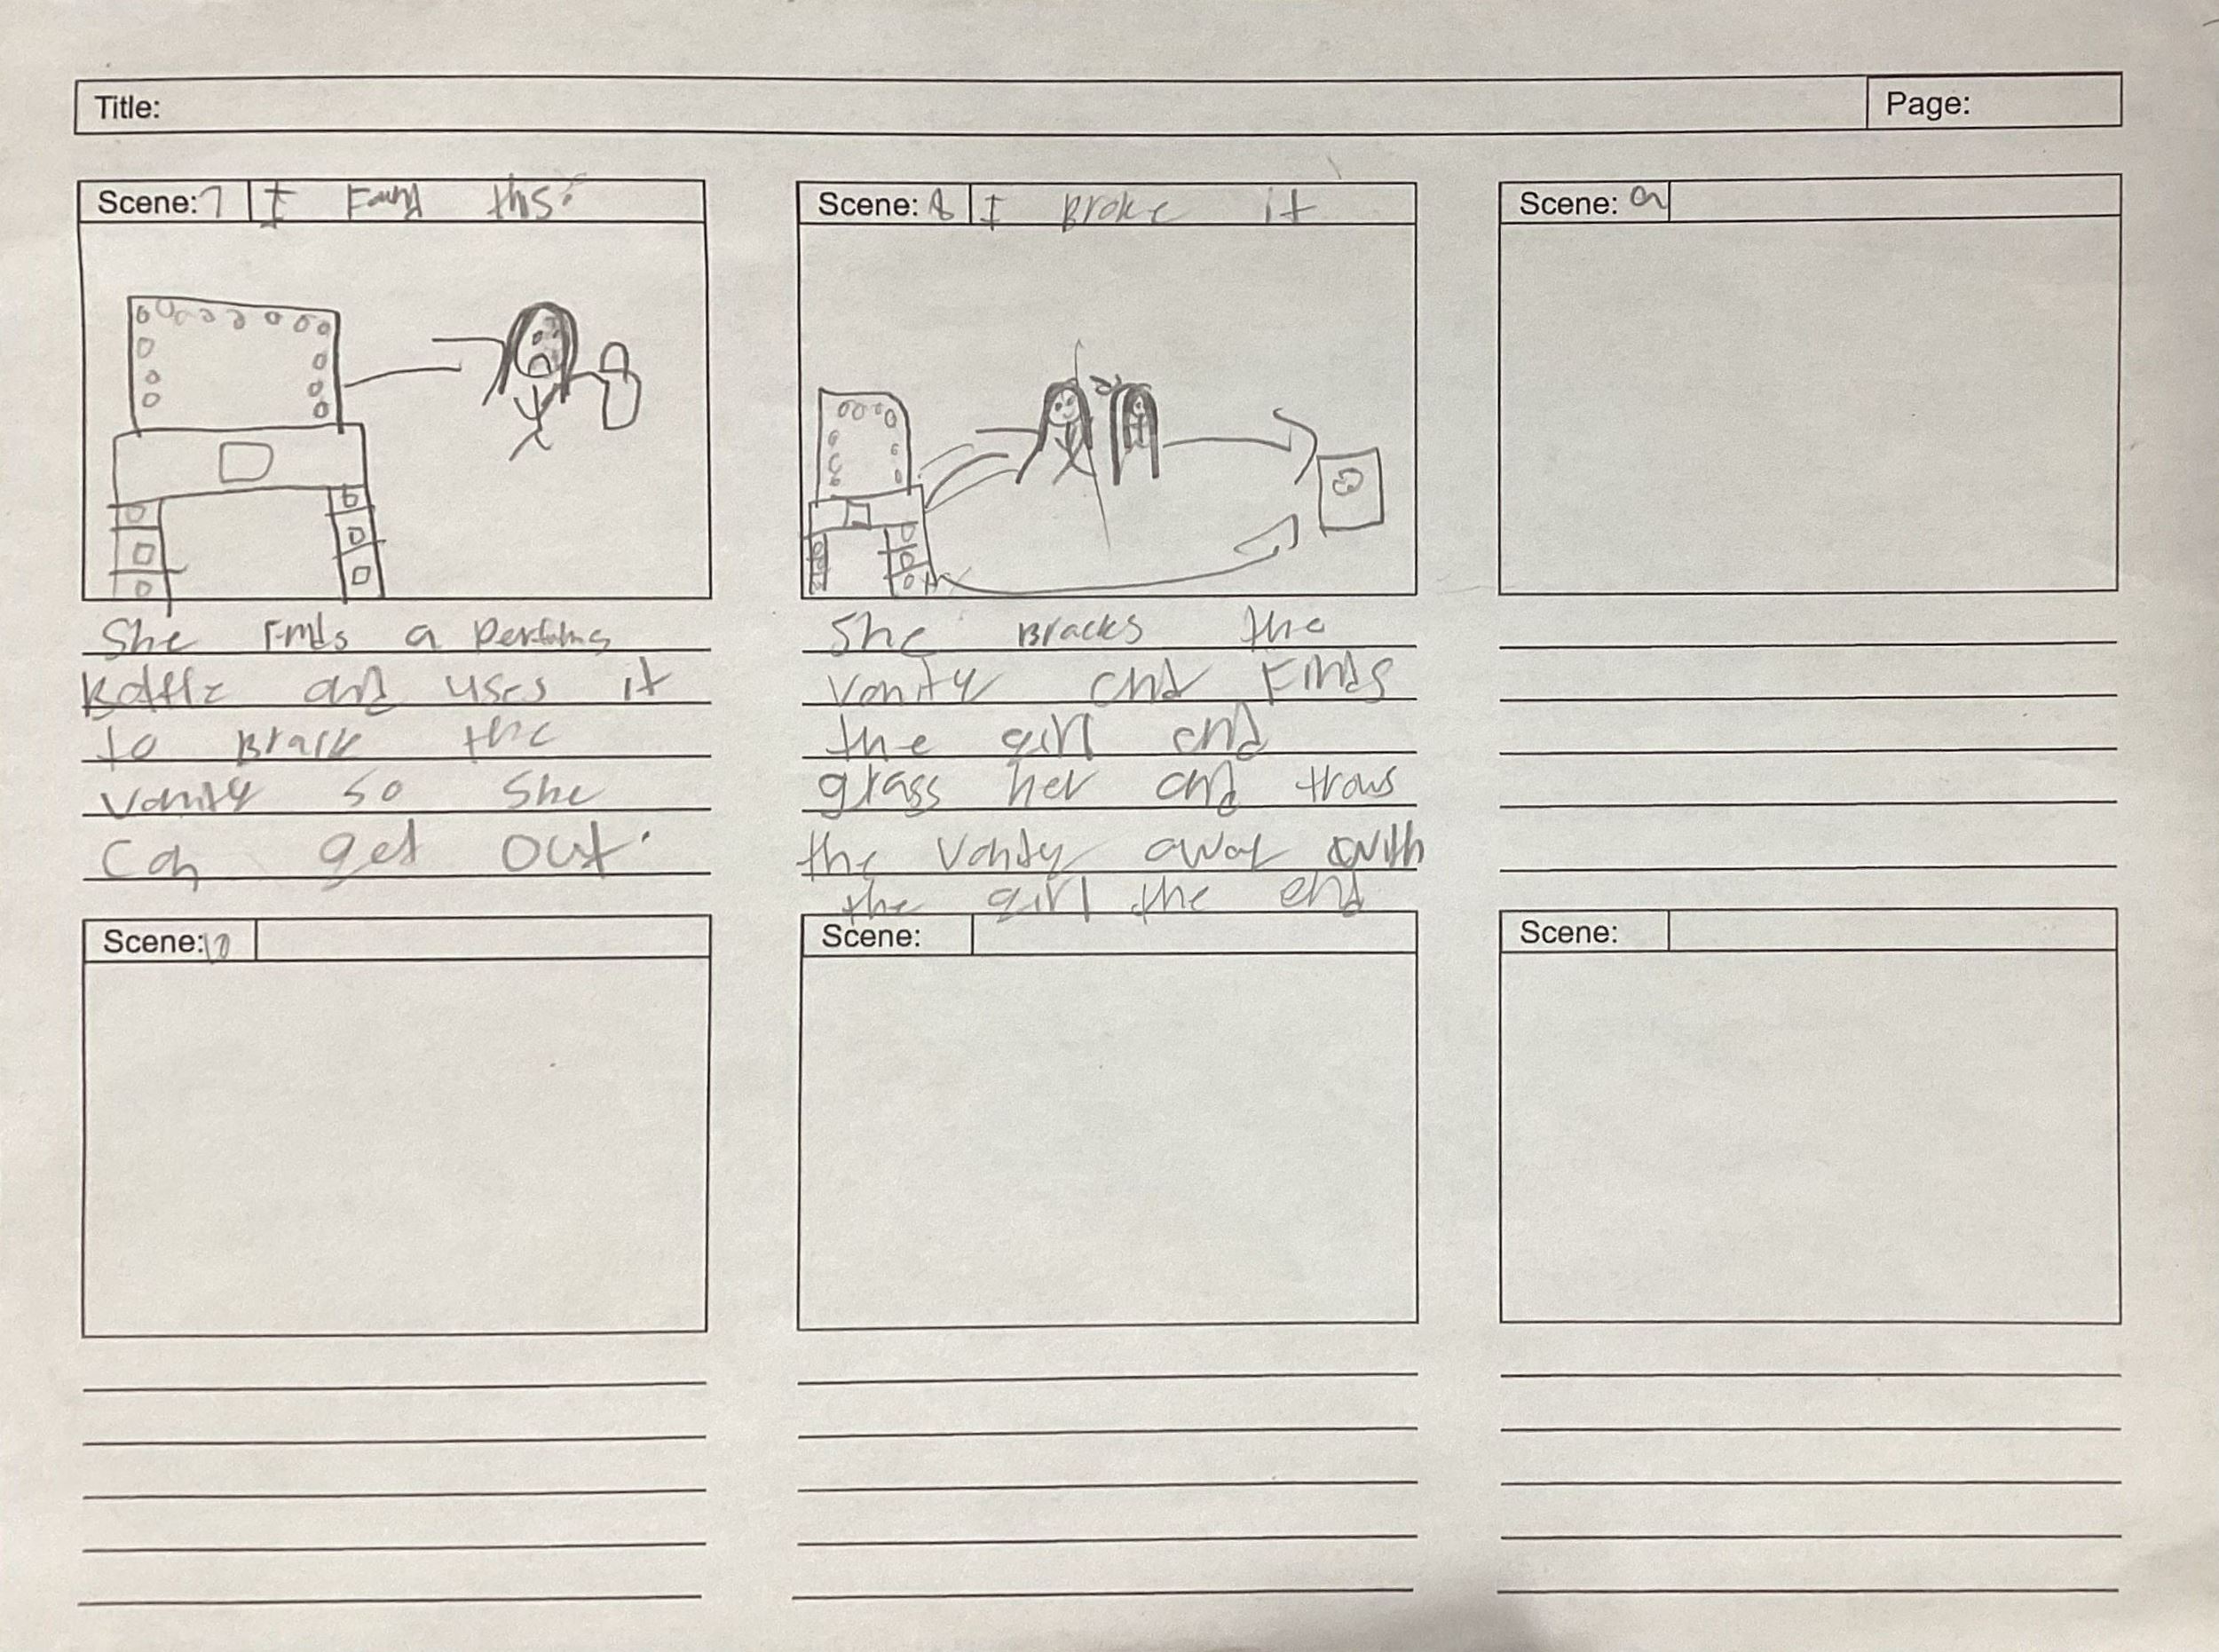 Title:
Page:
Scene: 7 I Found this.
Scene: 8 I Broke it
Scene: 9
She Finds a
Bottle and uses it
to Brack the
vanity so she
Can get out.
She Bracks the
vanity and Finds
the girl and
grabs her and trows
the vanity away with
the girl the end
Scene: 10
Scene:
Scene: